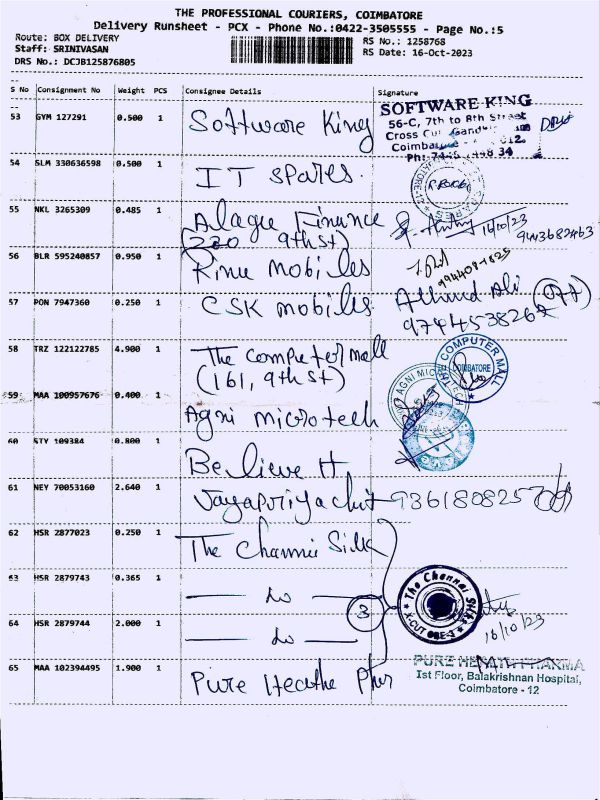 THE PROFESSIONAL COURIERS, COIMBATORE
Delivery Runsheet - PCX - Phone No.:0422-3505555 - Page No.:5
Route: BOX DELIVERY
Staff: SRINIVASAN
DRS No.: DCJB125876805
RS No.: 1258768
RS Date: 16-Oct-2023
S No Consignment No Weight PCS Consignee Details Signature
53 GYM 127291 0.500 1 Software King
SOFTWARE KING
56-C, 7th to 8th Street
Cross Cut Gandhi
Coimbatore
54 SLM 330636598 0.500 1 IT Spares.
55 NKL 3265309 0.485 1 Alague Finance
(220 9th St)
16/10/23
9443682463
56 BLR 595240857 0.950 1 Rinu mobiles
9944091825
57 PON 7947360 0.250 1 CSK mobiles
Ahmed Ali
58 TRZ 122122785 4.900 1 The computer mall
(161, 9th St)
THE COMPUTER MALL
COIMBATORE
59 MAA 100957676 0.400 1 Agni microtech
AGNI MICROTECH
60 STY 109384 0.800 1 Believe H
61 NEY 70053160 2.640 1 Jayapriya chit
62 HSR 2877023 0.250 1 The Channi Silk
63 HSR 2879743 0.365 1 do
3
The Chennai Silks
64 HSR 2879744 2.000 1 do
16/10/23
65 MAA 102394495 1.900 1 Pure Heathe Phar
PURE HEALTH PHARMA
Ist Floor, Balakrishnan Hospital,
Coimbatore - 12